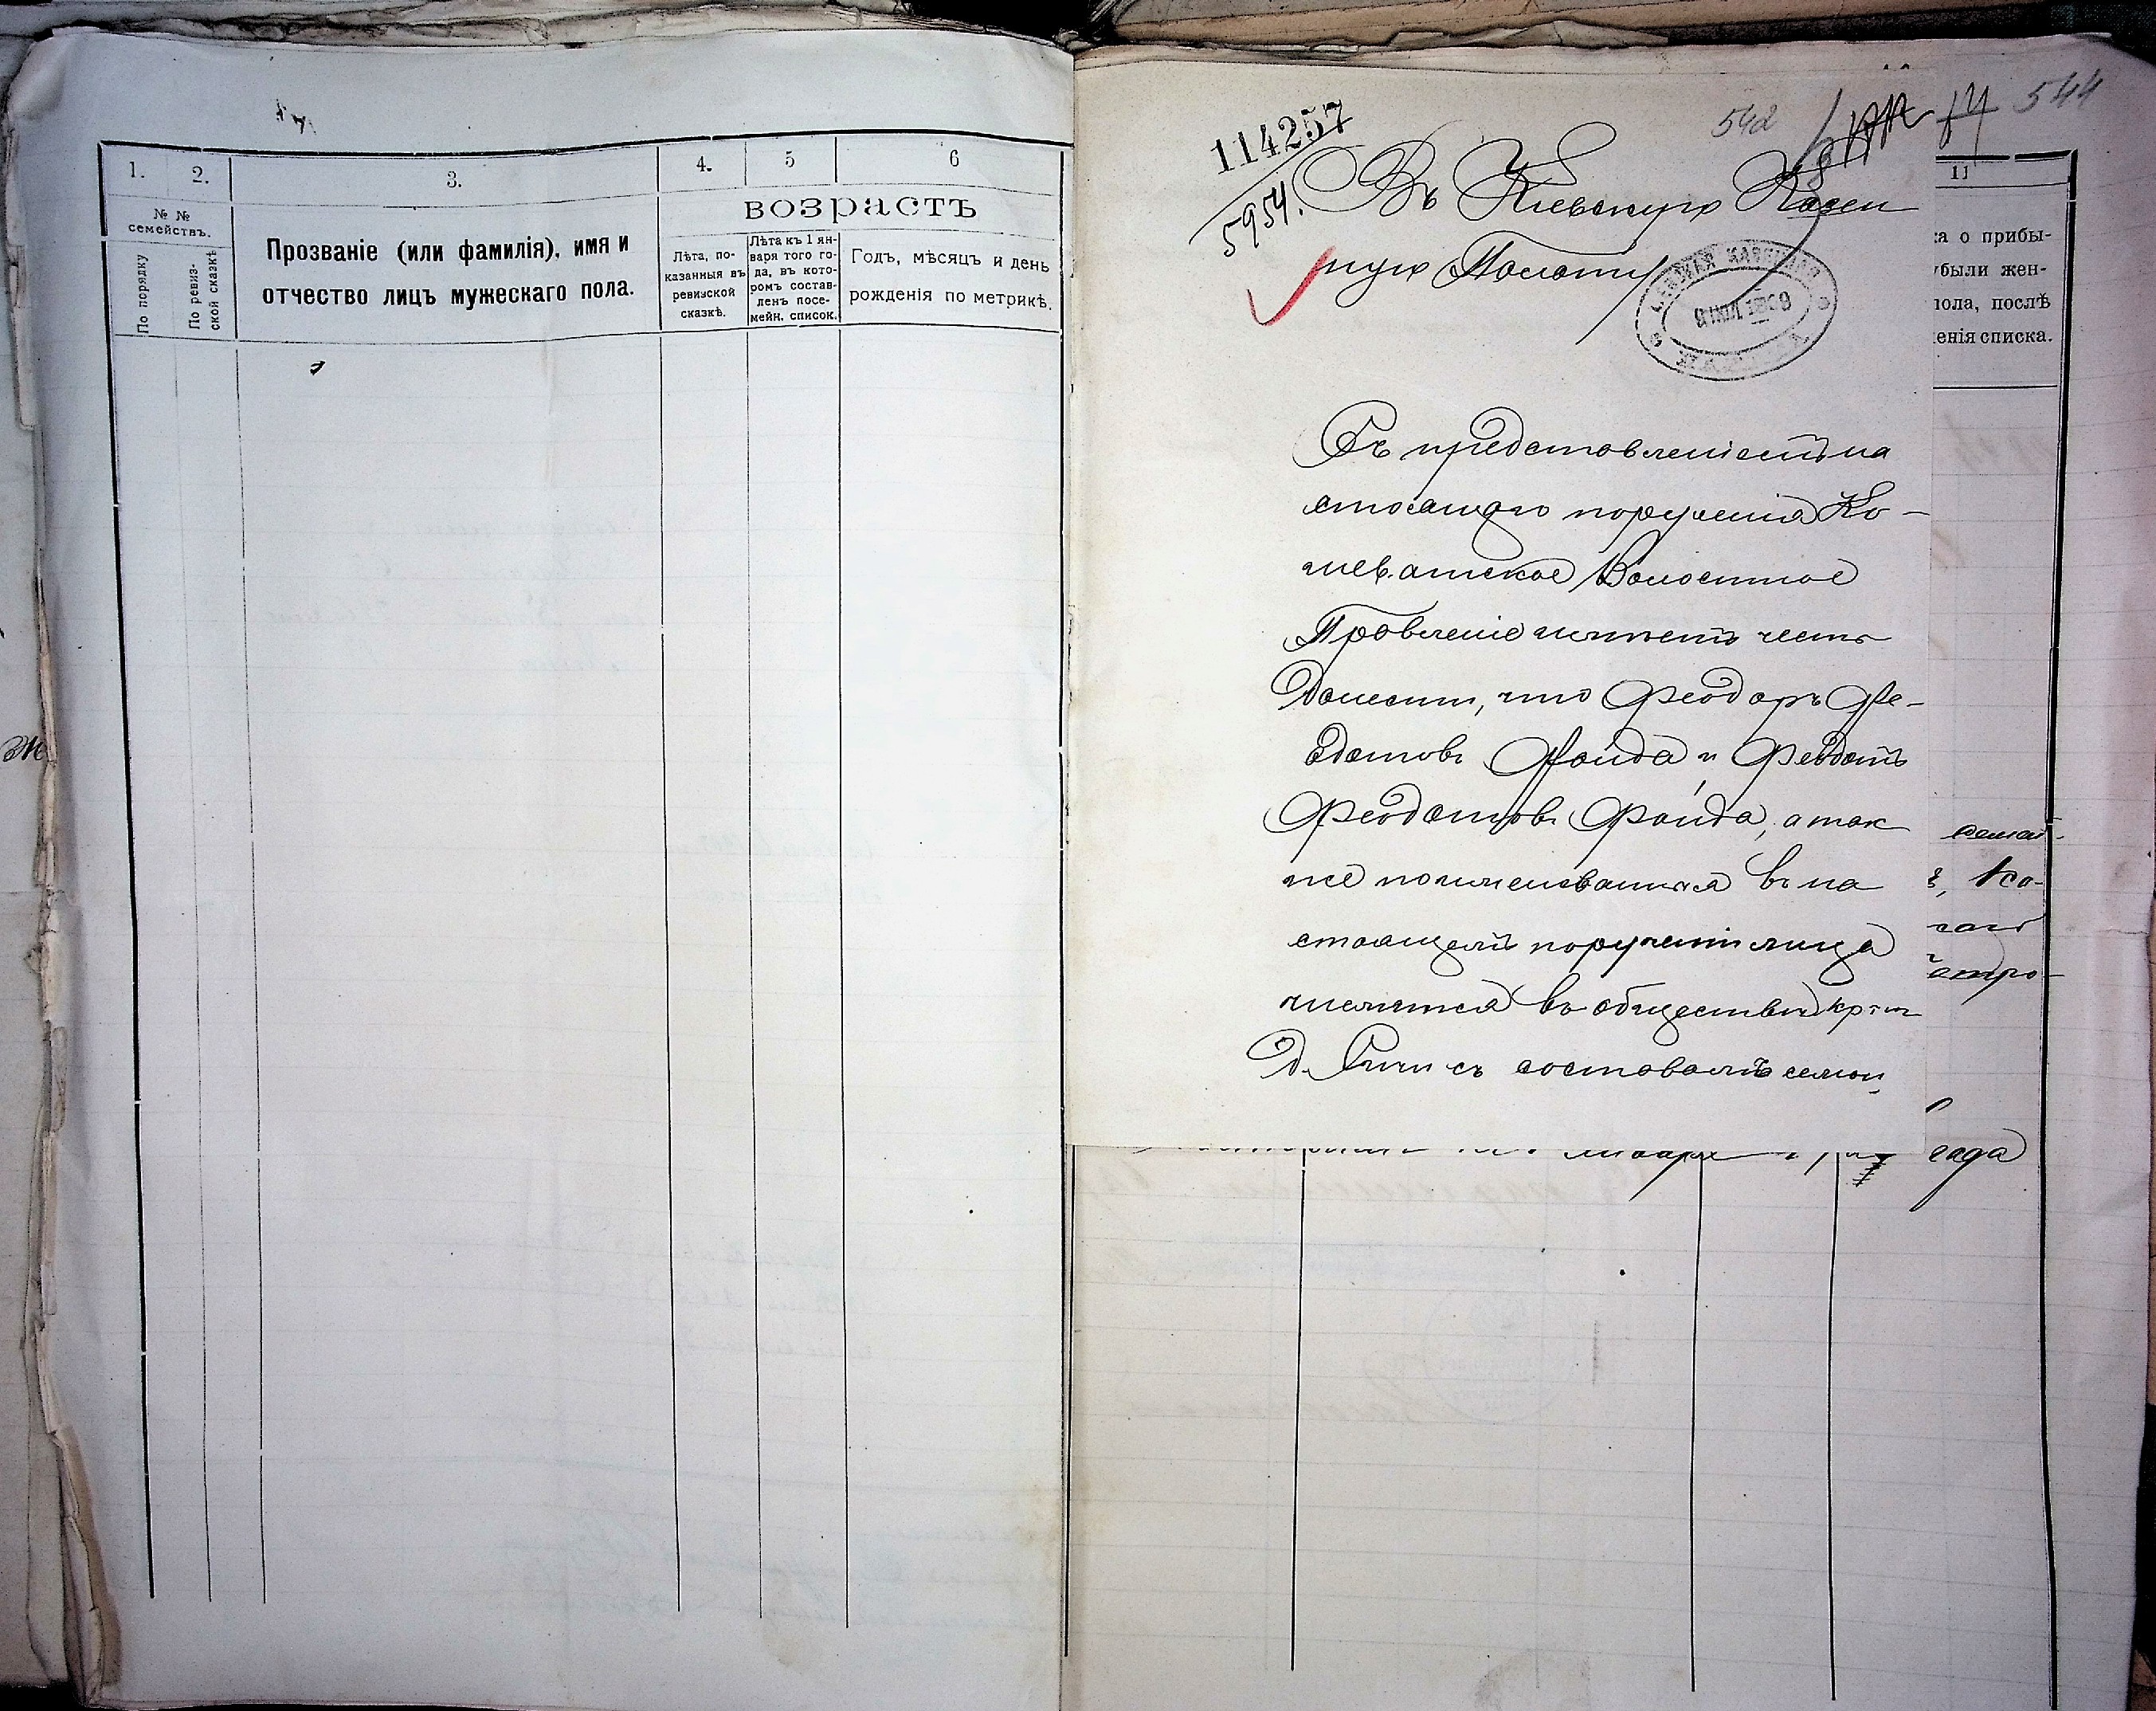 1.
2.
3.
4.
5
6
№ № семействъ.
По порядку
По ревиз-
ской сказкѣ
Прозваніе (или фамилія), имя и
отчество лицъ мужескаго пола.
возрастъ
Лѣта, по-
казанныя въ
ревизской
сказкѣ.
Лѣта къ 1 ян-
варя того го-
да, въ кото-
ромъ состав-
ленъ посе-
мейн. список.
Годъ, мѣсяцъ и день
рожденія по метрикѣ.
114257
5954.
542
544
Въ Кіевскую Казен
ную Палату
Съ представленіемъ на
стоящаго порученія Ко-
шеватское Волостное
Правленіе имѣетъ честь
донести, что Феодоръ Фе-
одотовъ Фойда и Феодотъ
Феодотовъ Фойда, а так
же поименованныя въ на
стоящемъ порученіи лица
числятся въ обществѣ кр-нъ
д. Сичи съ составомъ семьи,
11
ка о прибы-
убыли жен-
пола, послѣ
енія списка.
года